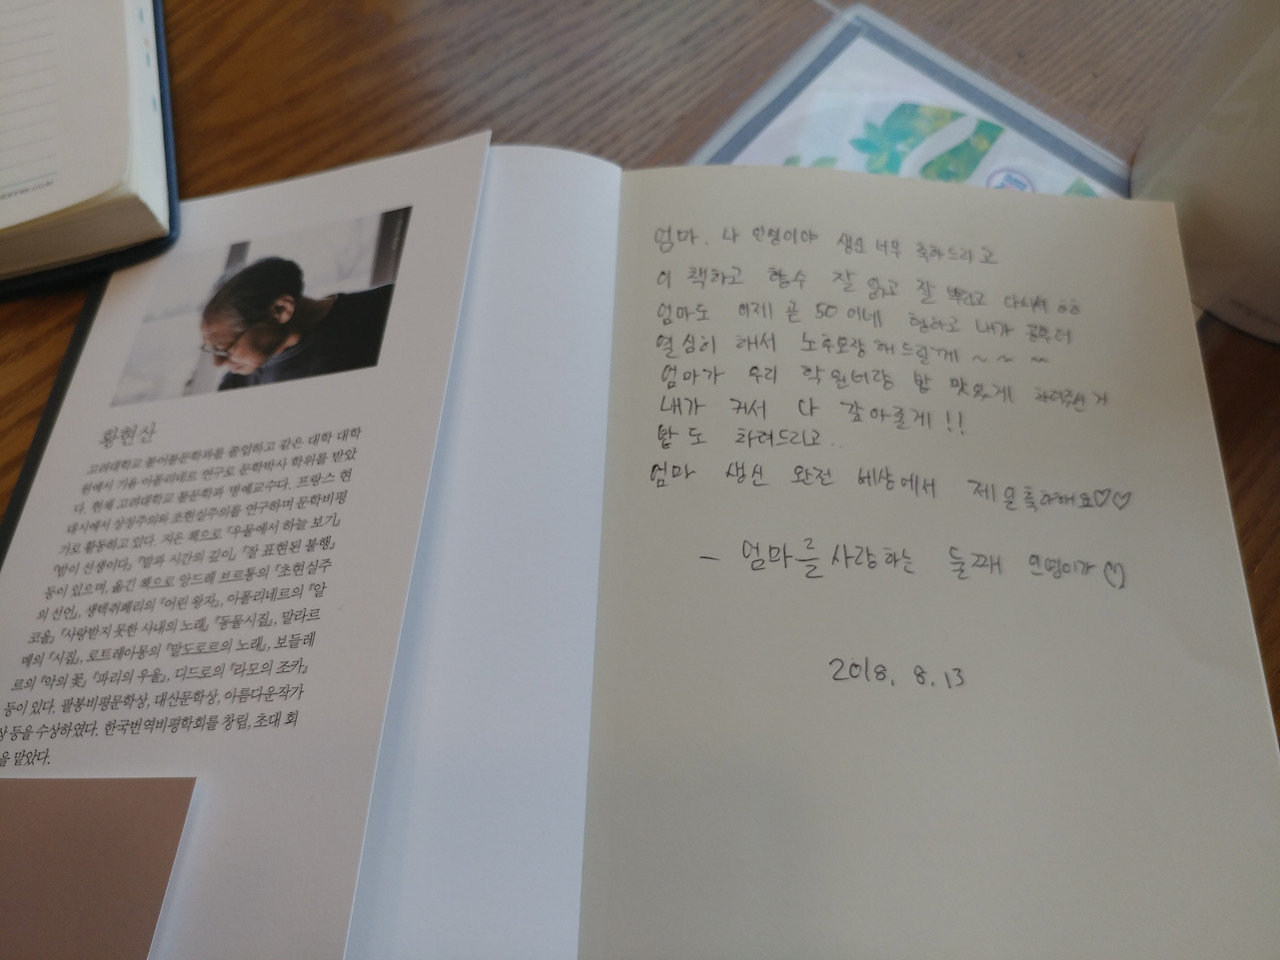 황현산
고려대학교 불어불문학과를 졸업하고 같은 대학 대학
원에서 기욤 아폴리네르 연구로 문학박사 학위를 받았
다. 현재 고려대학교 불문학과 명예교수다. 프랑스 현
대시에서 상징주의와 초현실주의를 연구하며 문학비평
가로 활동하고 있다. 지은 책으로 『우물에서 하늘 보기』
『밤이 선생이다』, 『말과 시간의 깊이』, 『잘 표현된 불행』
등이 있으며, 옮긴 책으로 앙드레 브르통의 『초현실주
의 선언』, 생텍쥐페리의 『어린 왕자』, 아폴리네르의 『알
코올』, 『사랑받지 못한 사내의 노래』, 『동물시집』, 말라르
메의 『시집』, 로트레아몽의 『말도로르의 노래』, 보들레
르의 『악의 꽃』, 『파리의 우울』, 디드로의 『라모의 조카』
등이 있다. 팔봉비평문학상, 대산문학상, 아름다운작가
상 등을 수상하였다. 한국번역비평학회를 창립, 초대 회
을 맡았다.
엄마. 나 인영이야 생신 너무 축하드리고
이 책하고 향수 잘 읽고 잘 뿌리고 다니셔 ㅎㅎ
엄마도 이제 곧 50이네 내가 공부
열심히 해서 노후보장 해드릴게 ~ ~ ~
엄마가 우리 학원비랑 밥 맛있게 차려주신 거
내가 커서 다 갚아줄게!!
밥도 차려드리고..
엄마 생신 완전 세상에서 제일 축하해요♡♡
- 엄마를 사랑하는 둘째 인영이가 ♡
2018. 8. 13